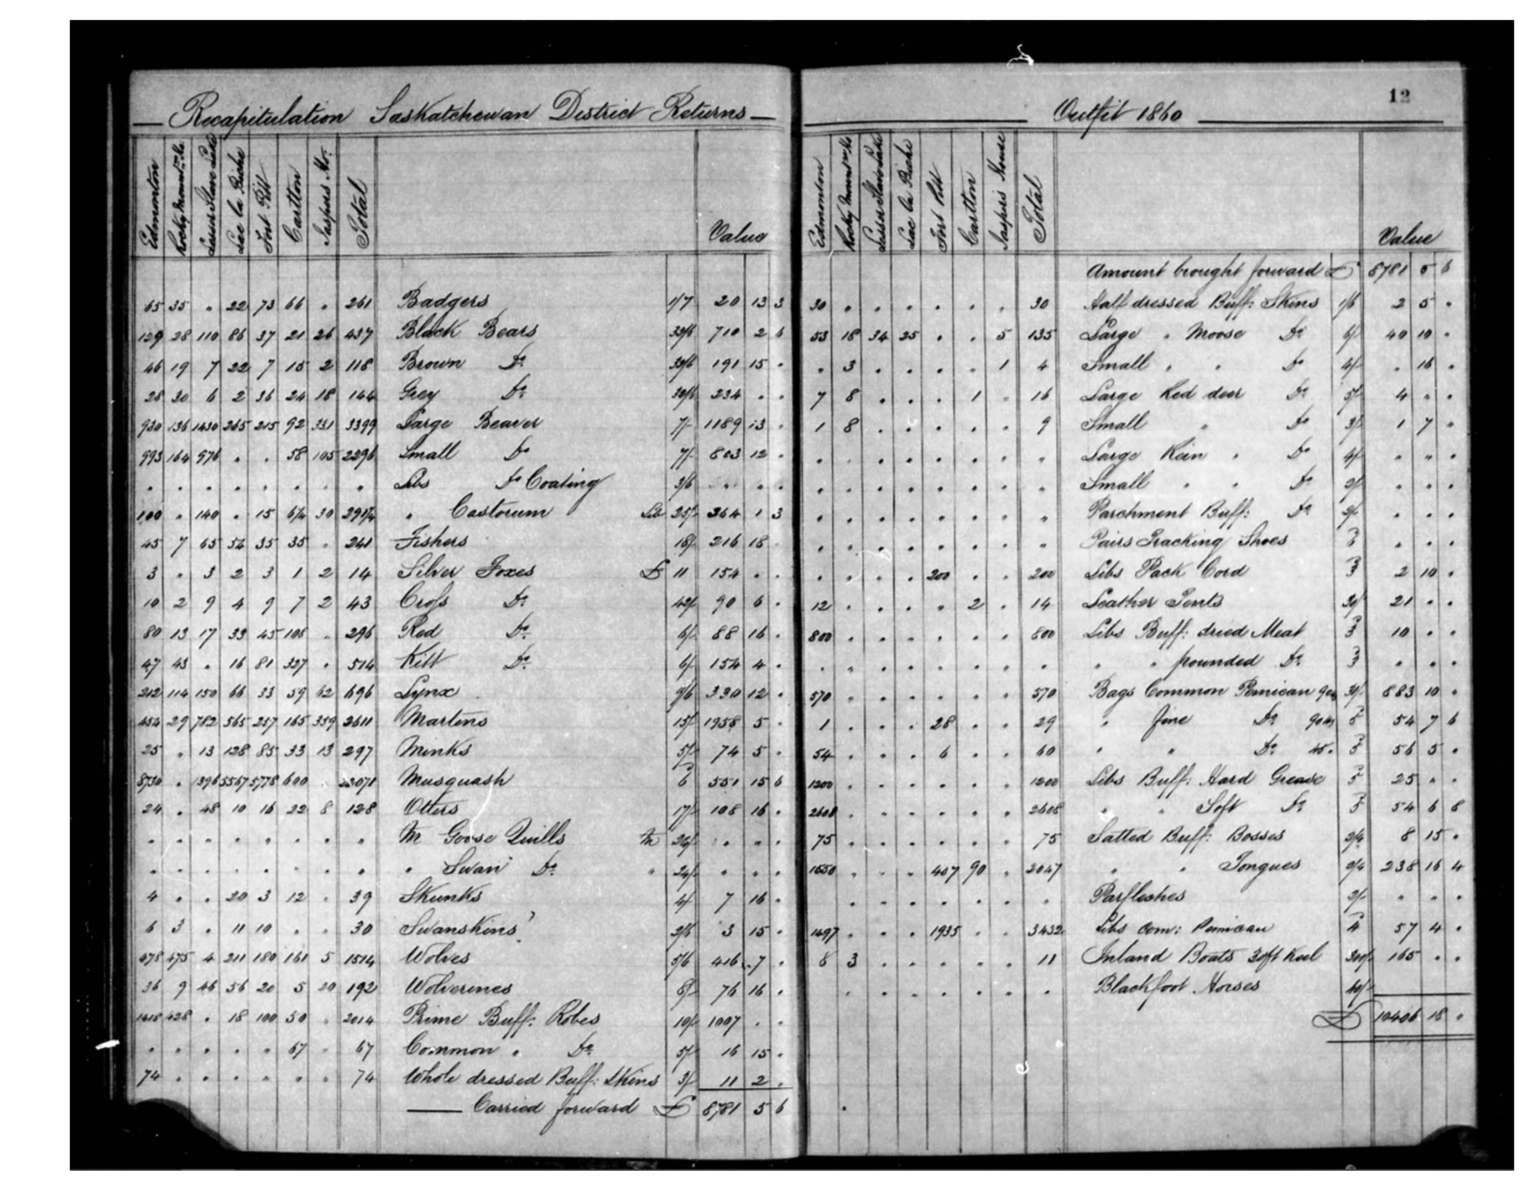 Recapitulation Saskatchewan District Returns
Edmonton Rocky Mount. Ho. Lesser Slave Lake Lac la Biche Fort Pitt Carlton Jaspers Ho. Total Value
65 35 . 22 73 66 . 261 Badgers 1/7 20 13 3
129 28 110 86 37 21 26 437 Black Bears 32/6 710 2 6
46 19 7 22 7 15 2 118 Brown Do 32/6 191 15 .
28 30 6 2 36 24 18 144 Grey Do 32/6 234 . .
930 136 1430 265 215 92 331 3399 Large Beaver 7/ 1189 13 .
993 164 976 . . 58 105 2296 Small Do 7/ 803 12 .
. . . . . . . . Lbs Do Coating 3/6 . . .
100 . 140 . 15 6¼ 30 291¼ " Castorum Lb 25/ 364 1 3
45 7 65 54 35 35 . 241 Fishers 18/ 216 18 .
3 . 3 2 3 1 2 14 Silver Foxes £ 11 154 . .
10 2 9 4 9 7 2 43 Cross Do 42/ 90 6 .
80 13 17 33 45 108 . 296 Red Do 6/ 88 16 .
47 43 . 16 81 327 . 514 Kitt Do 6/ 154 4 .
212 114 150 66 33 59 62 696 Lynx 9/6 330 12 .
454 29 782 565 257 165 359 2611 Martens 15/ 1958 5 .
25 . 13 128 85 33 13 297 Minks 5/ 74 5 .
8730 . 1396 5567 5778 600 . 22071 Musquash 6 551 15 6
24 . 48 10 16 22 8 128 Otters 17/ 108 16 .
. . . . . . . . M Goose Quills M 24/ . . .
. . . . . . . . " Swan Do " 24/ . . .
4 . . 20 3 12 . 39 Skunks 4/ 7 16 .
6 3 . 11 10 . . 30 Swanskins 2/6 3 15 .
478 475 4 211 180 161 5 1514 Wolves 5/6 416 7 .
36 9 46 56 20 5 20 192 Wolverines 8/ 76 16 .
1418 428 . 18 100 50 . 2014 Prime Buff: Robes 10/ 1007 . .
. . . . . 67 . 67 Common " Do 5/ 16 15 .
74 . . . . . . 74 Whole dressed Buff: Skins 3/ 11 2 .
Carried forward £ 8781 5 6
12
Outfit 1860
Edmonton Rocky Mount. Ho Lesser Slave Lake Lac la Biche Fort Pitt Carlton Jaspers House Total Value
Amount brought forward £ 8781 5 6
30 . . . . . . 30 Half dressed Buff: Skins 1/6 2 5 .
53 18 34 25 . . 5 135 Large " Moose Do 6/ 40 10 .
. 3 . . . . 1 4 Small " " Do 4/ . 16 .
7 8 . . . 1 . 16 Large Red deer Do 5/ 4 . .
1 8 . . . . . 9 Small " Do 3/ 1 7 .
. . . . . . . . Large Rein " Do 4/ . . .
. . . . . . . . Small " " Do 3/ . . .
. . . . . . . . Parchment Buff: Do 2/ . . .
. . . . . . . . Pairs Tracking Shoes 3 . . .
. . . . 200 . . 200 Lbs Pack Cord 3 2 10 .
12 . . . . 2 . 14 Leather Tents 30/ 21 . .
800 . . . . . . 800 Lbs Buff: dried Meat 3 10 . .
. . . . . . . . " " pounded Do 3 . . .
570 . . . . . . 570 Bags Common Pemican 90lbs 31/ 883 10 .
1 . . . 28 . . 29 " Fine Do 90lbs 54 7 6
54 . . . 6 . . 60 " " Do 45 " 56 5 .
1200 . . . . . . 1200 Lbs Buff: Hard Grease 25 . .
2608 . . . . . . 2608 " Soft Do 54 6 8
75 . . . . . . 75 Salted Buff: Bosses 2/4 8 15 .
1550 . . . 407 90 . 2047 " " Tongues 2/4 238 16 4
. . . . . . . . Parfleshes 2/ . . .
1497 . . . 1935 . . 3432 Lbs Com: Pemican 4 57 4 .
8 3 . . . . . 11 Inland Boats 30ft Keel 300/ 165 . .
. . . . . . . . Blackfoot Horses 40/
£ 10406 18 .